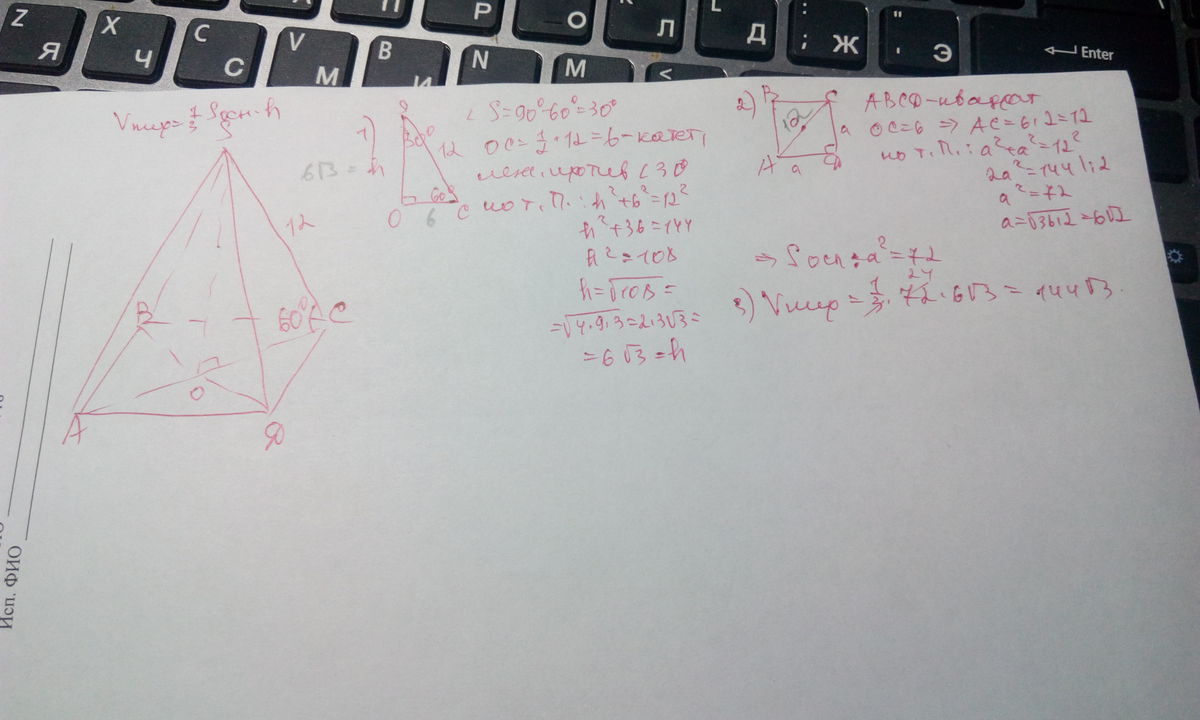 Z Я
X Ч
C С
V М
B И
П
N
P
M
О
<
Л
L Д
: ; Ж
" ' Э
Enter
Vпир=1/3 Sосн·h
S
12
B
60°
C
O
A
D
1)
S
30°
12
6√3 = h
60°
O
6
C
∠ S=90°-60°=30°
OC=1/2·12=6-катет,
леж. против ∠30°
по т. П.: h²+6²=12²
h²+36=144
h²=108
h=√108=
=√4·9·3=2·3√3=
=6√3=h
2)
B
C
12
a
A
a
D
ABCD-квадрат
OC=6 ⇒ AC=6·2=12
по т. П.: a²+a²=12²
2a²=144 |:2
a²=72
a=√36·2=6√2
⇒ Sосн=a²=72
24
3) Vпир=1/3·72·6√3=144√3.
Исп. ФИО